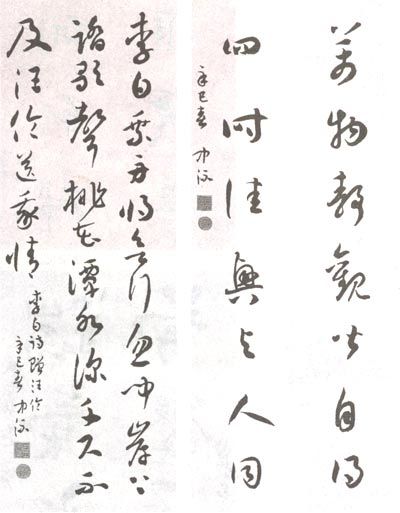 萬物靜觀皆自得
四时佳興与人同
辛巳春
李白乘舟将欲行忽闻岸上
踏歌聲桃花潭水深千尺不
及汪伦送我情
李白诗赠汪伦
辛巳春